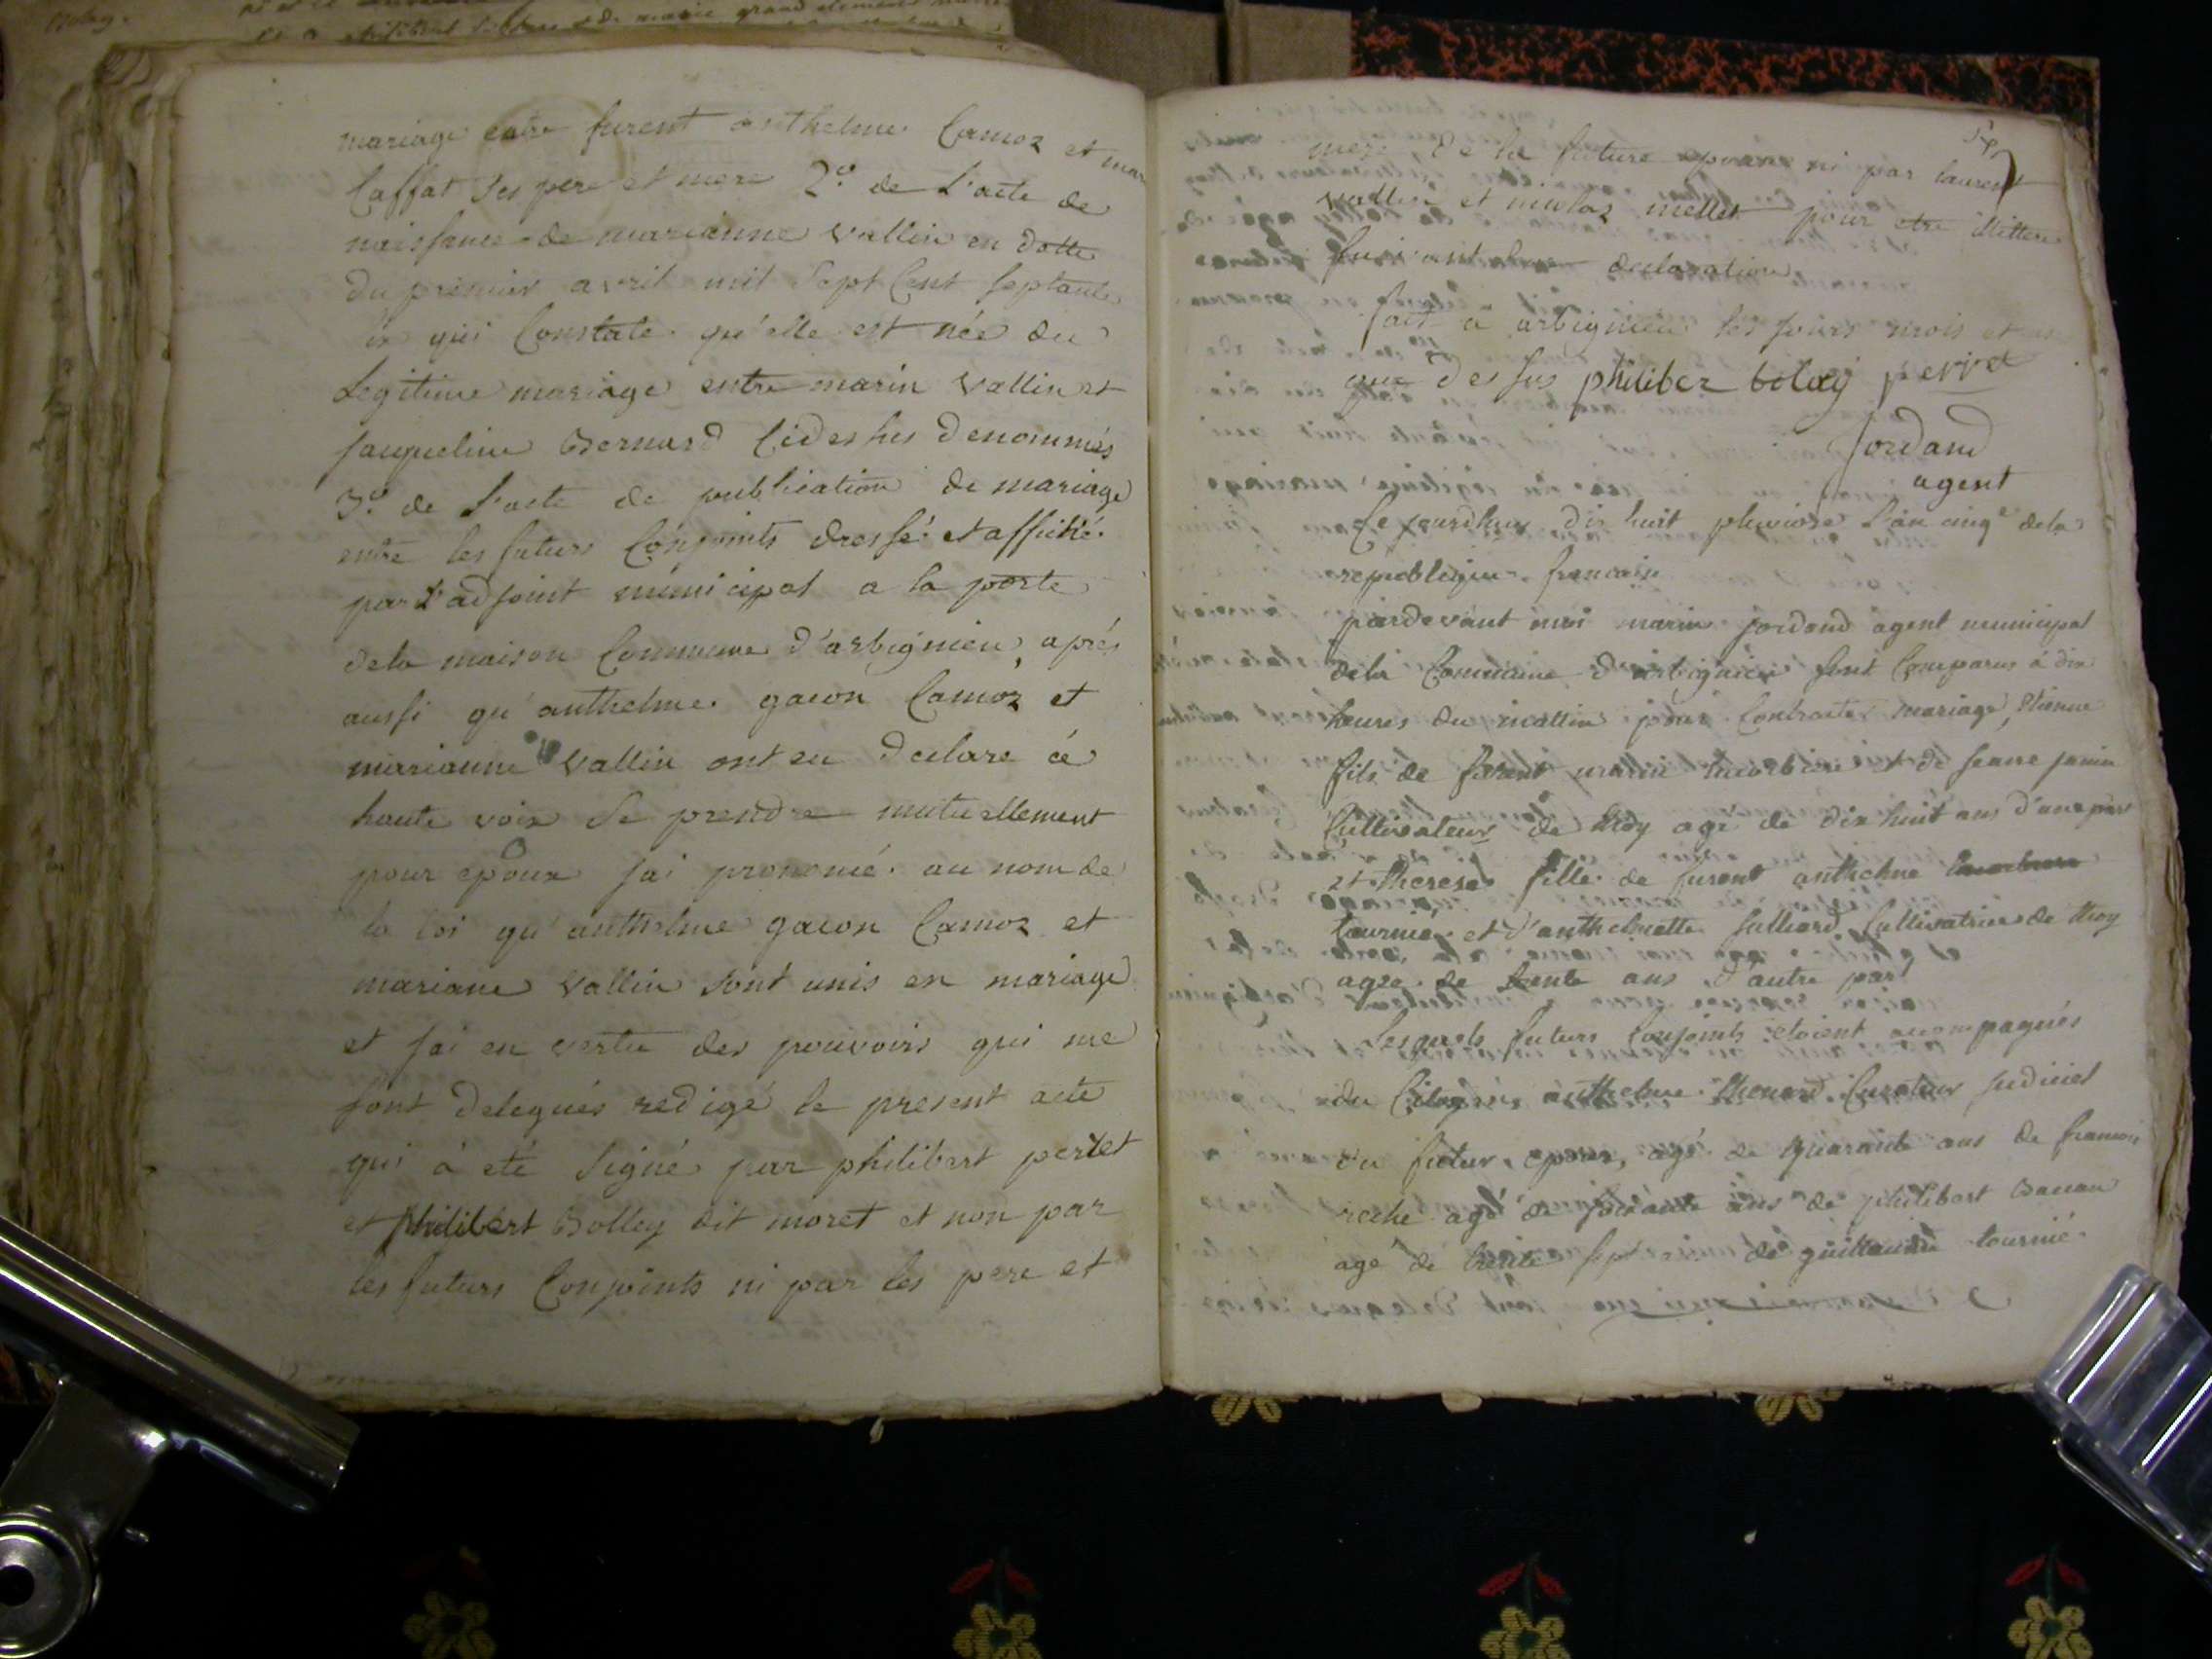 mariage entre furent anthelme Camoz et mar
Caffat ses pere et mere 2.º de l'acte de
naissance de marianne vallin en datte
du premier avril mil sept Cent septante
qui Constate qu'elle est née du
Legitime mariage entre marin vallin et
jaqueline Bernard Cideshus denommés
3.º de l'acte de publication de mariage
entre les futurs Conjoints dressé et affiché
par l'adjoint municipal a la porte
dela maison Commune d'arbignieu, aprés
aussi qu'anthelme gacon Camoz et
marianne vallin ont eu declare a
haute voix se prendre mutuellement
pour epoux jai prononcé au nom de
la loi qu'anthelme gacon Camoz et
mariane vallin sont unis en mariage
et jai en vertu des pouvoirs qui me
sont delegués redigé le present acte
qui à eté signé par philibert perret
et philibert Bolley dit moret et non par
les futurs Conjoints ni par les pere et
mere de la future epouse ni par laurent
vallin et nicolas mellet pour etre illittere
suivant leur declaration
fait a arbignieu les jours mois et
que dessus philiber bolay perret
Jordand
agent
Cejourdhuy dix huit pluviose l'an cinq.e dela
republique francaise
pardevant moi marin jordand agent municipal
dela Commune d'arbignieu sont Comparus à dix
heures du mattin pour Contracter mariage, Etienne
fils de furent marin et de jeanne janin
Cultivateur de thoy age de dix huit ans d'une part
et therese fille de furent anthelme
tournié et d'anthelmette julliard Cultivatrice de thoy
agee de trente ans d'autre part
Lesquels futurs Conjoints etoient accompagnés
du Citoyens anthelme Curateur judiciel
du futur epoux, agé de quarante ans de francois
reche agé de soixante ans de philibert
agé de trente sept ans de guillaume tournié